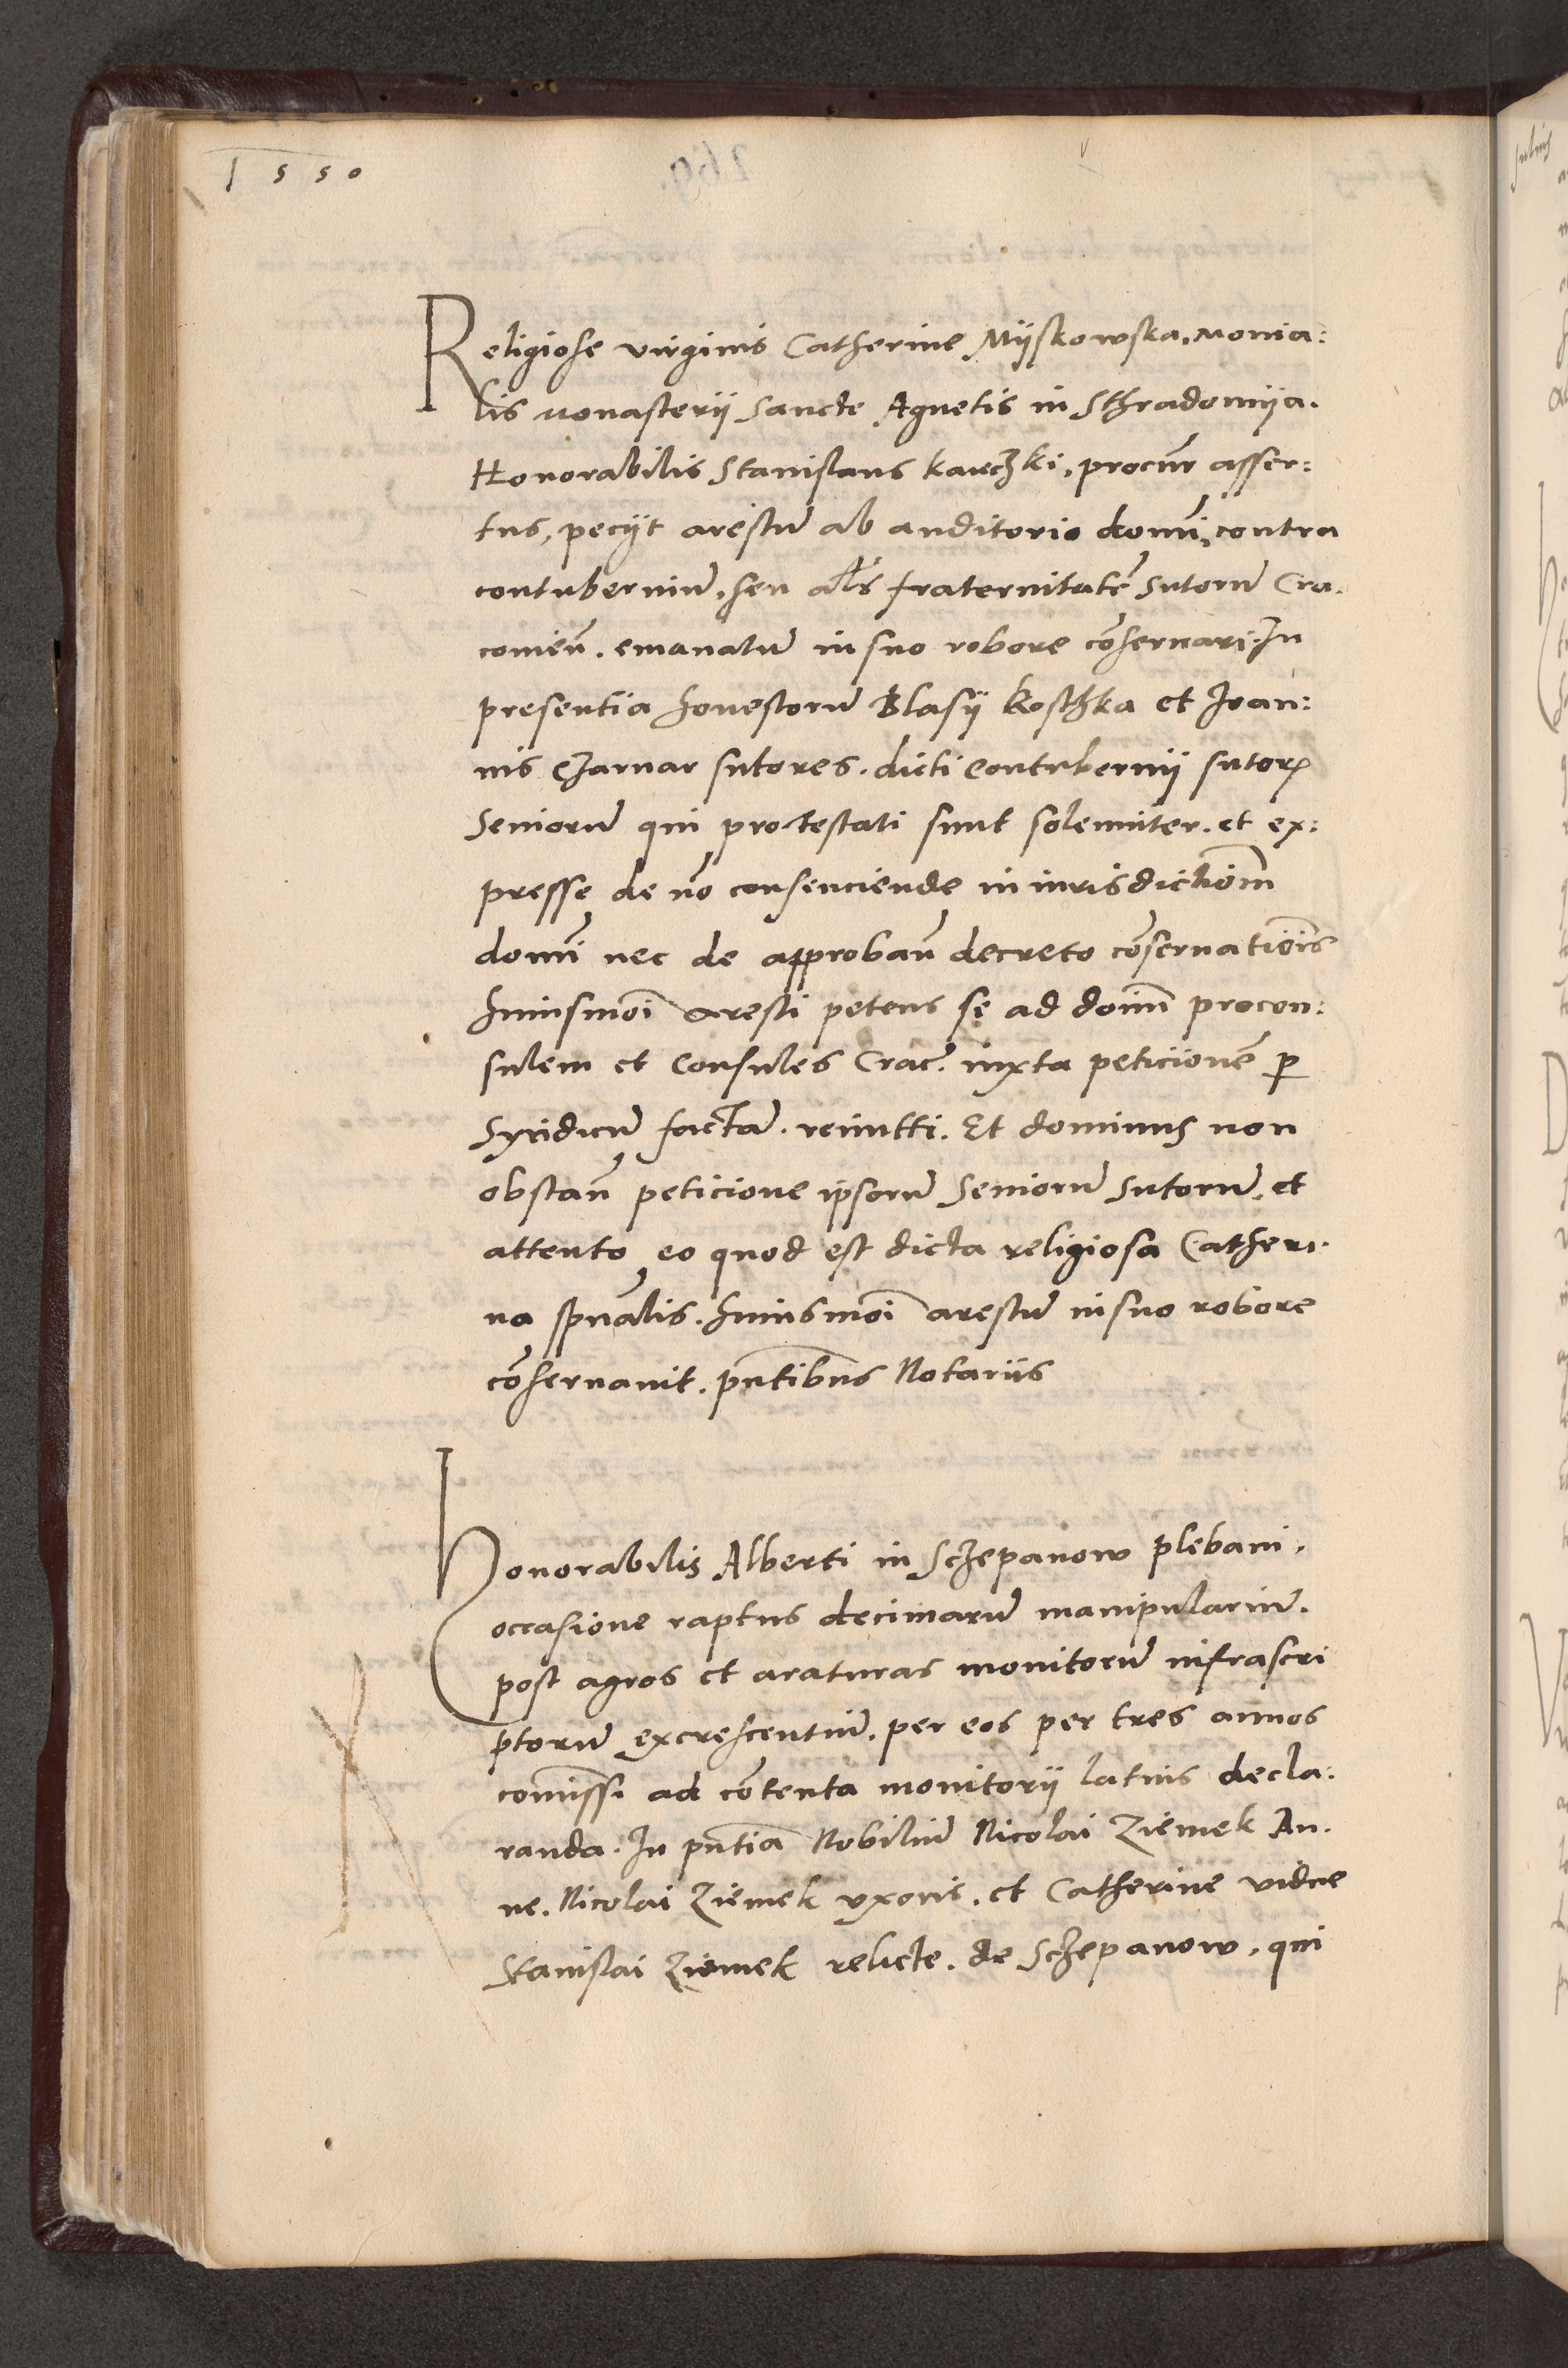 1550
Religiose virginis Catherine Mÿskowska, monia:
lis monasterÿ Sancte Agnetis in Sthradomÿa.
Honorabilis Stanislaus karczki, procur̄ asser:
tus, pecÿt arestū ab auditorio domī, contra
contuberniū, seu al̄s fraternitatē Sutorū Cra.
couieñ. emanatū in suo robore cōservari. In
presentia honestorū Blasÿ Kosthka et Joan:
nis Czarnar sutores. dicti Contubernÿ sutorꝝ
Seniorū qui protestati sunt solemniter. et ex:
presse de nō consenciende in iurisdictionm̄
domī nec de approbañ decreto cōservationis
huiusmoī aresti petens se ad doim̄ procon:
sulem et Consules Crac̄. iuxta peticionē ꝑ
Syndicū factā. remitti. Et dominus non
obstañ peticione ipsorū Seniorū Sutorū. et
attento eo quod est dicta religiosa Catheri.
na spūalis. huiusmoī arestū in suo robore
cōservauit. pn̄tibus Notariis
Honorabilis Alberti in Sczepanow plebani.
occasione raptus decimarū manipulariū.
post agros et araturas monitorū infrascri
ptorū excrescentiū. per eos per tres annos
com̄issi ad cōtenta monitorÿ latius decla:
randa. In pn̄tia Nobiliū Nicolai Ziemek An.
ne. Nicolai Ziemek vxoris. et Catherine vidue
Stanislai Ziemek relicte. de Sczepanow. qui